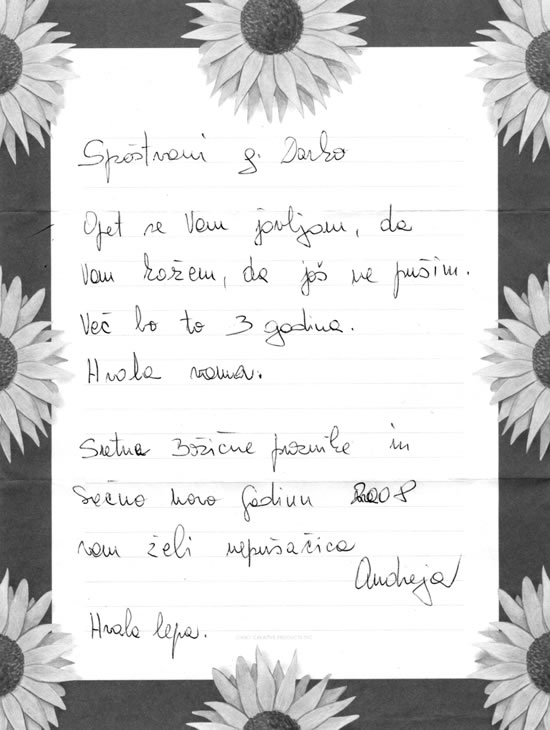 Spoštvani g. Darko
Opet se Vam javljam, da
Vam kažem, da još ne pušim.
Več bo to 3 godina.
Hvala vama.
Sretna Božične praznike in
Sečno novo godinu 2008
vam želi nepušačica
Andreja
Hvala lepa.